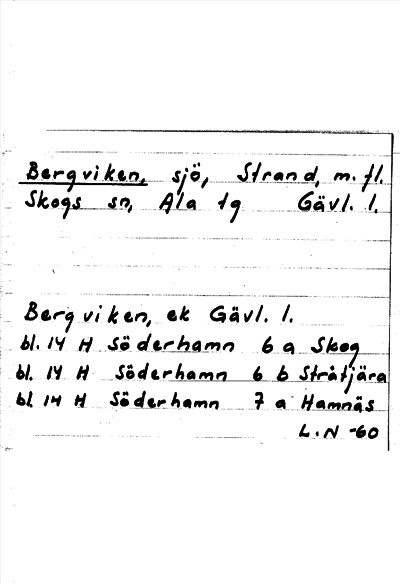 Bergviken, sjö, Strand, m. fl.
Skogs sn, Ala tg Gävl. l.
Bergviken, ek Gävl. l.
bl. 14 H Söderhamn 6 a Skog
bl. 14 H Söderhamn 6 b Stråtjära
bl. 14 H Söderhamn 7 a Hamnäs
L. N -60